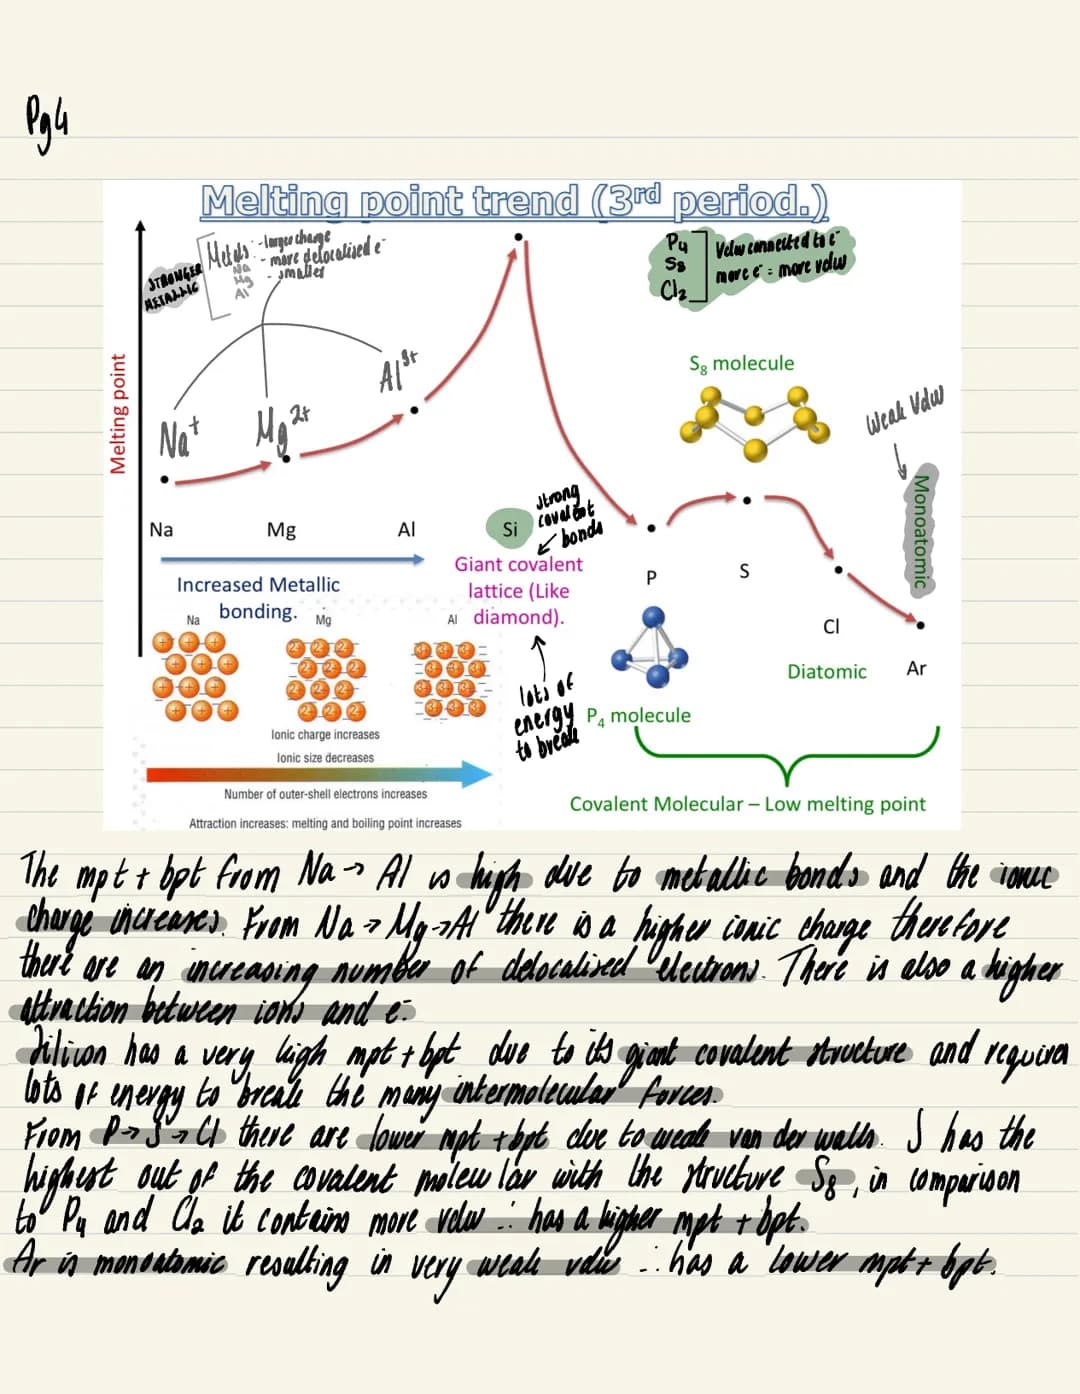 Pg4
Melting point trend (3rd period.)
STRONGER METALLIC
Metals: - larger charge
- more delocalised e-
- smaller
Na
Mg
Al
P4
S8
Cl2
Vdw connected to e-
more e- = more vdw
Melting point
Na+
Mg2+
Al3+
S8 molecule
Weak Vdw
Monoatomic
Na
Mg
Al
Si
strong covalent bonds
Giant covalent
lattice (Like
diamond).
lots of
energy
to break
Increased Metallic
bonding.
Na
Mg
Al
P
S
Cl
Ar
Diatomic
P4 molecule
Ionic charge increases
Ionic size decreases
Number of outer-shell electrons increases
Attraction increases: melting and boiling point increases
Covalent Molecular – Low melting point
The mpt + bpt from Na → Al is high due to metallic bonds and the ionic
charge increases. From Na → Mg → Al there is a higher ionic charge therefore
there are an increasing number of delocalised electrons. There is also a higher
attraction between ions and e-.
Silicon has a very high mpt + bpt due to its giant covalent structure and requires
lots of energy to break the many intermolecular forces.
From P → S → Cl there are lower mpt + bpt due to weak van der walls. S has the
highest out of the covalent molecular with the structure S8, in comparison
to P4 and Cl2 it contains more vdw ∴ has a higher mpt + bpt.
Ar is monoatomic resulting in very weak vdw ∴ has a lower mpt + bpt.